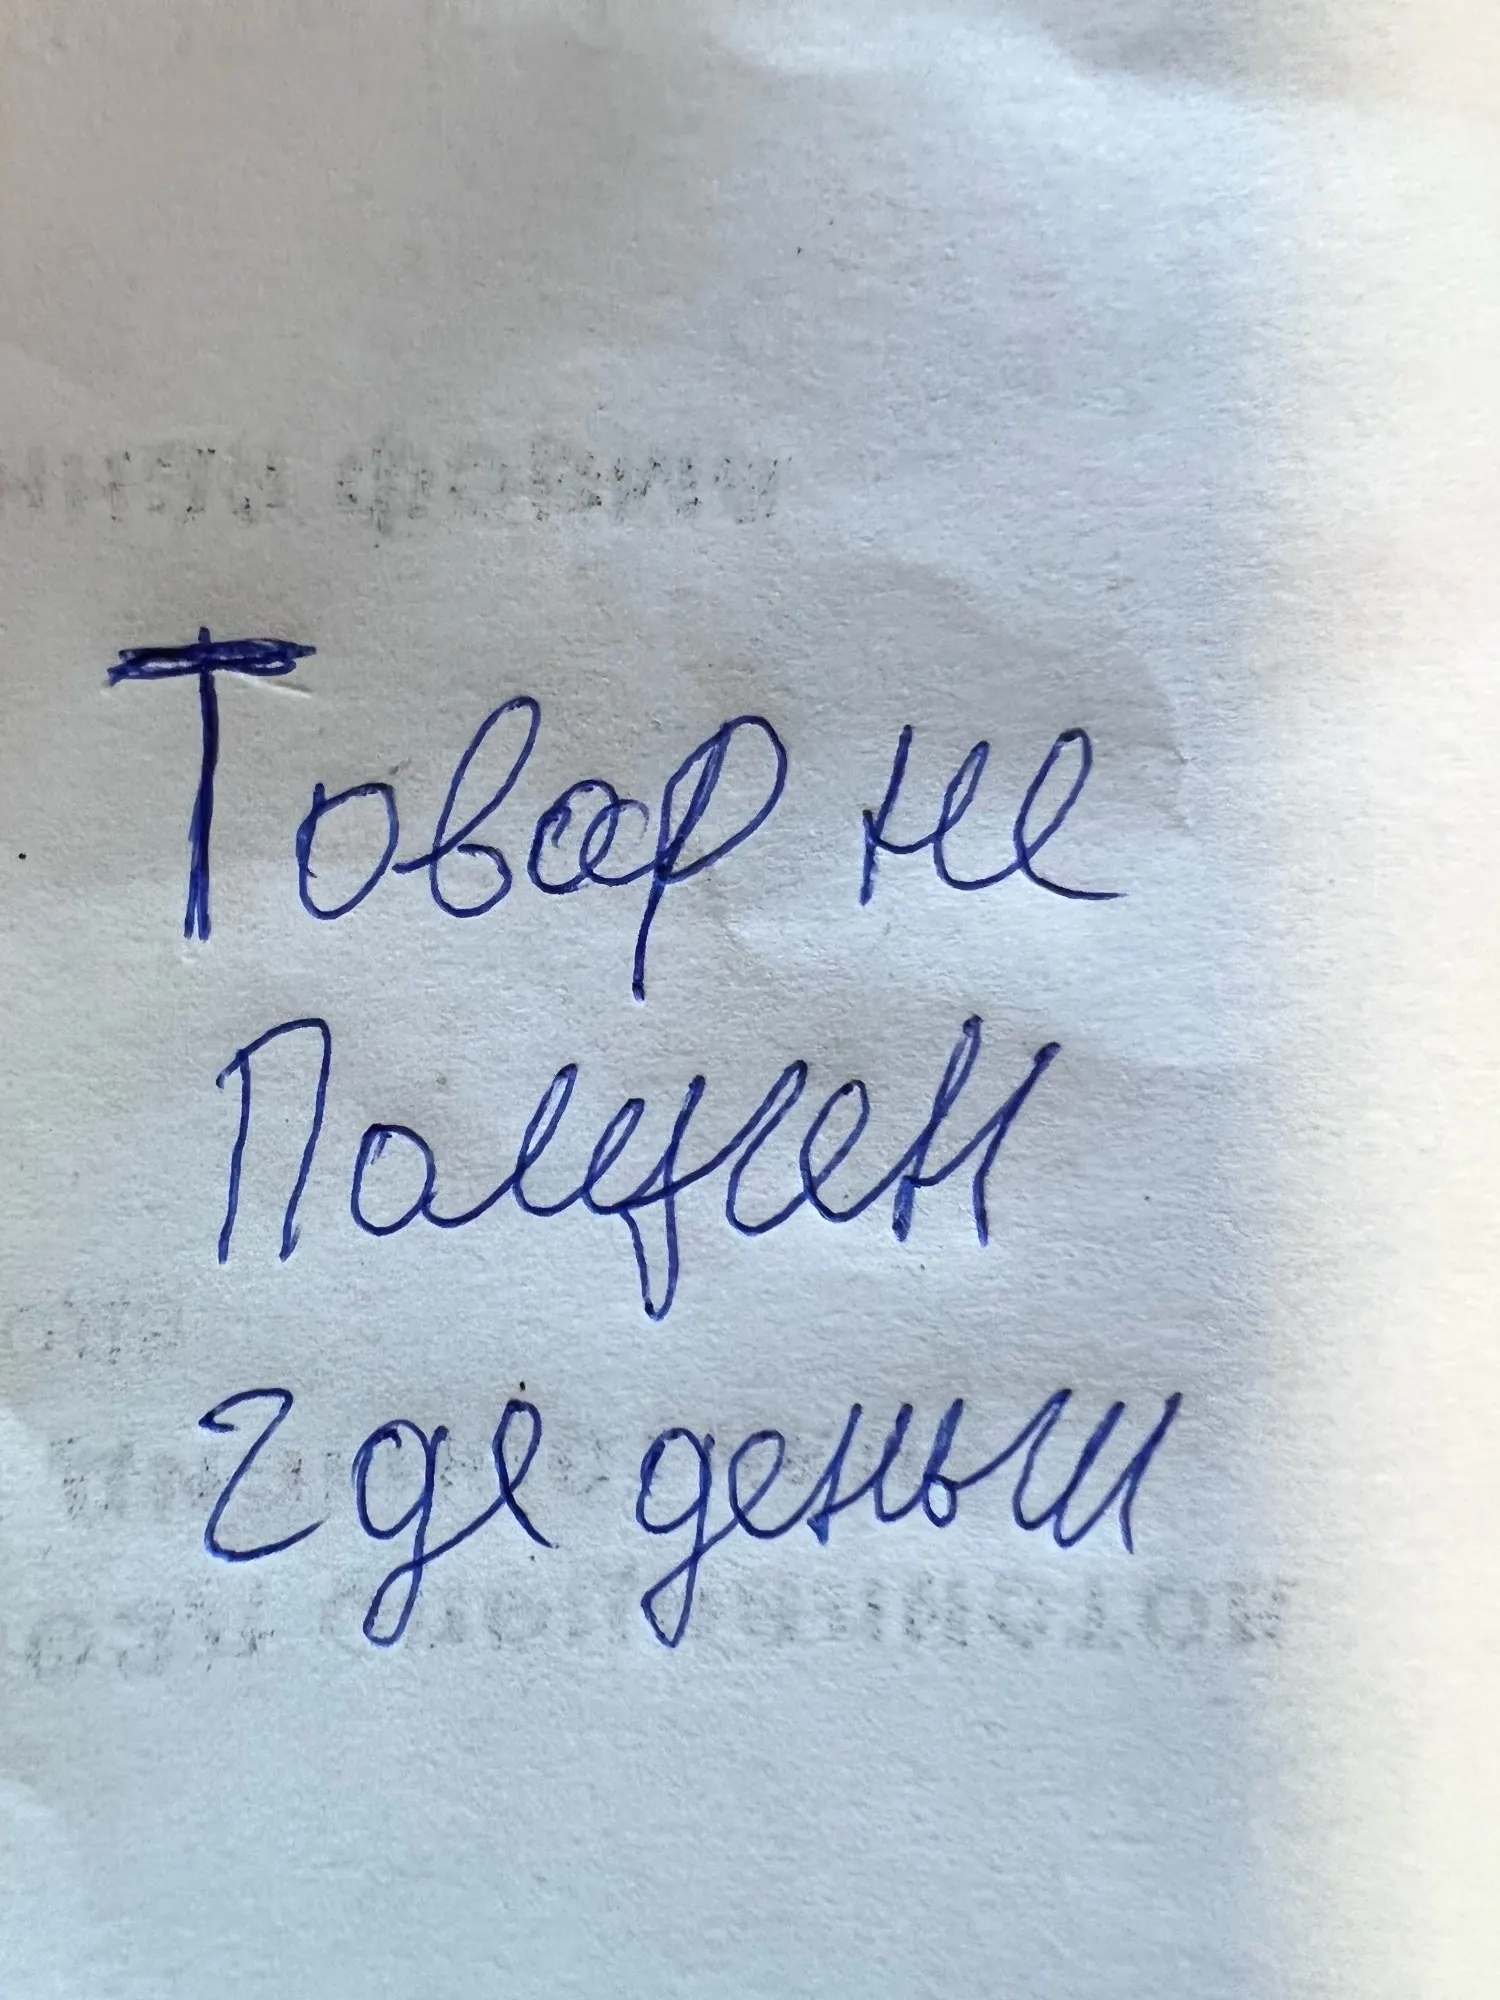 Товар не
Получен
где деньги